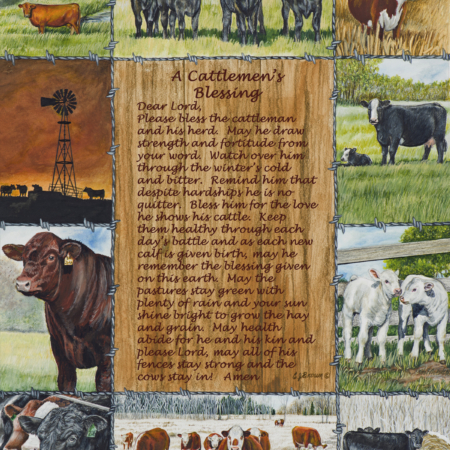 A Cattlemen's
Blessing
Dear Lord,
Please bless the cattleman
and his herd. May he draw
strength and fortitude from
your word. Watch over him
through the winter's cold
and bitter. Remind him that
despite hardships he is no
quitter. Bless him for the love
he shows his cattle. Keep
them healthy through each
day's battle and as each new
calf is given birth, may he
remember the blessing given
on this earth. May the
pastures stay green with
plenty of rain and your sun
shine bright to grow the hay
and grain. May health
abide for he and his kin and
please Lord, may all of his
fences stay strong and the
cows stay in! Amen